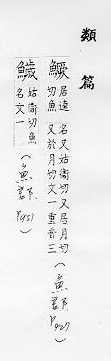 類篇
鱖 居遠 名又姑衛切又居月切
切魚 又於月切文一重音三 (魚部 P427)
鱥 姑衛切魚
名文一 (魚部 P451)